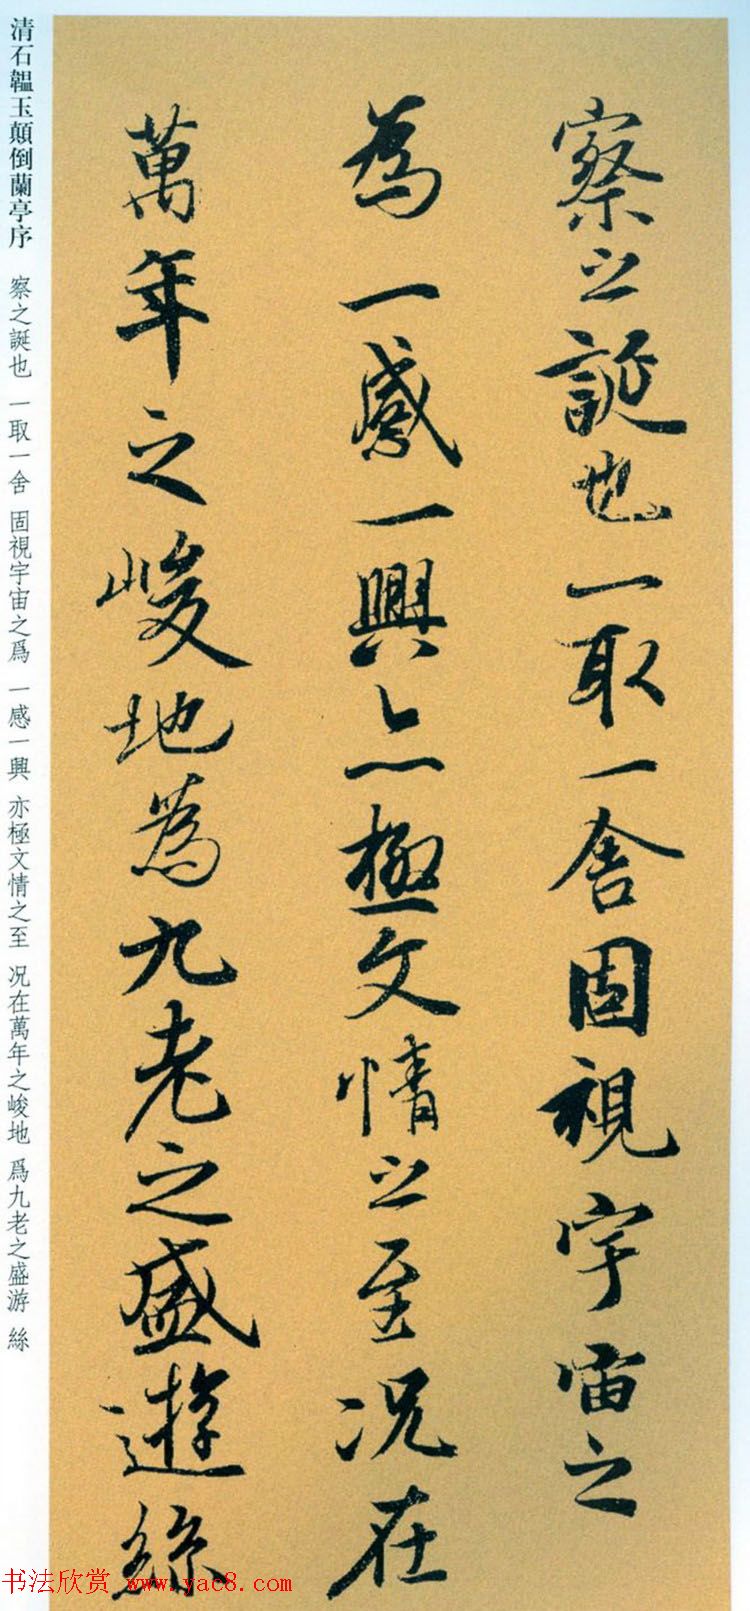 察之誕也一取一舍固視宇宙之
為一感一興亦極文情之至况在
萬年之峻地為九老之盛遊絲
清石韞玉顛倒蘭亭序 察之誕也 一取一舍 固視宇宙之爲 一感一興 亦極文情之至 况在萬年之峻地 爲九老之盛游 絲
书法欣赏 www.yac8.com